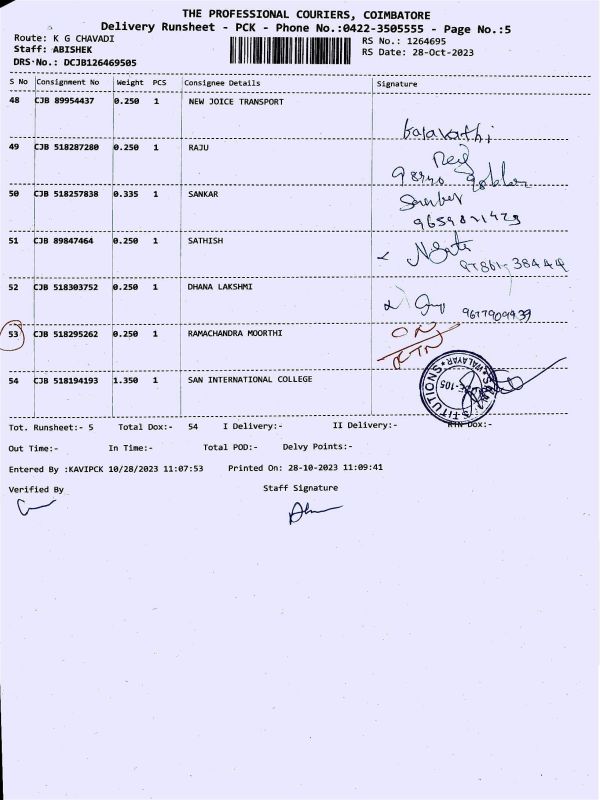 THE PROFESSIONAL COURIERS, COIMBATORE
Delivery Runsheet - PCK - Phone No.:0422-3505555 - Page No.:5
Route: K G CHAVADI
RS No.: 1264695
Staff: ABISHEK
RS Date: 28-Oct-2023
DRS.No.: DCJB126469505
S No Consignment No Weight PCS Consignee Details Signature
48 CJB 89954437 0.250 1 NEW JOICE TRANSPORT
49 CJB 518287280 0.250 1 RAJU
50 CJB 518257838 0.335 1 SANKAR
51 CJB 89847464 0.250 1 SATHISH
52 CJB 518303752 0.250 1 DHANA LAKSHMI
53 CJB 518295262 0.250 1 RAMACHANDRA MOORTHI
RTN
54 CJB 518194193 1.350 1 SAN INTERNATIONAL COLLEGE
WALAYAR
Tot. Runsheet:- 5 Total Dox:- 54 I Delivery:- II Delivery:- RTN Dox:-
Out Time:- In Time:- Total POD:- Delvy Points:-
Entered By :KAVIPCK 10/28/2023 11:07:53 Printed On: 28-10-2023 11:09:41
Verified By Staff Signature